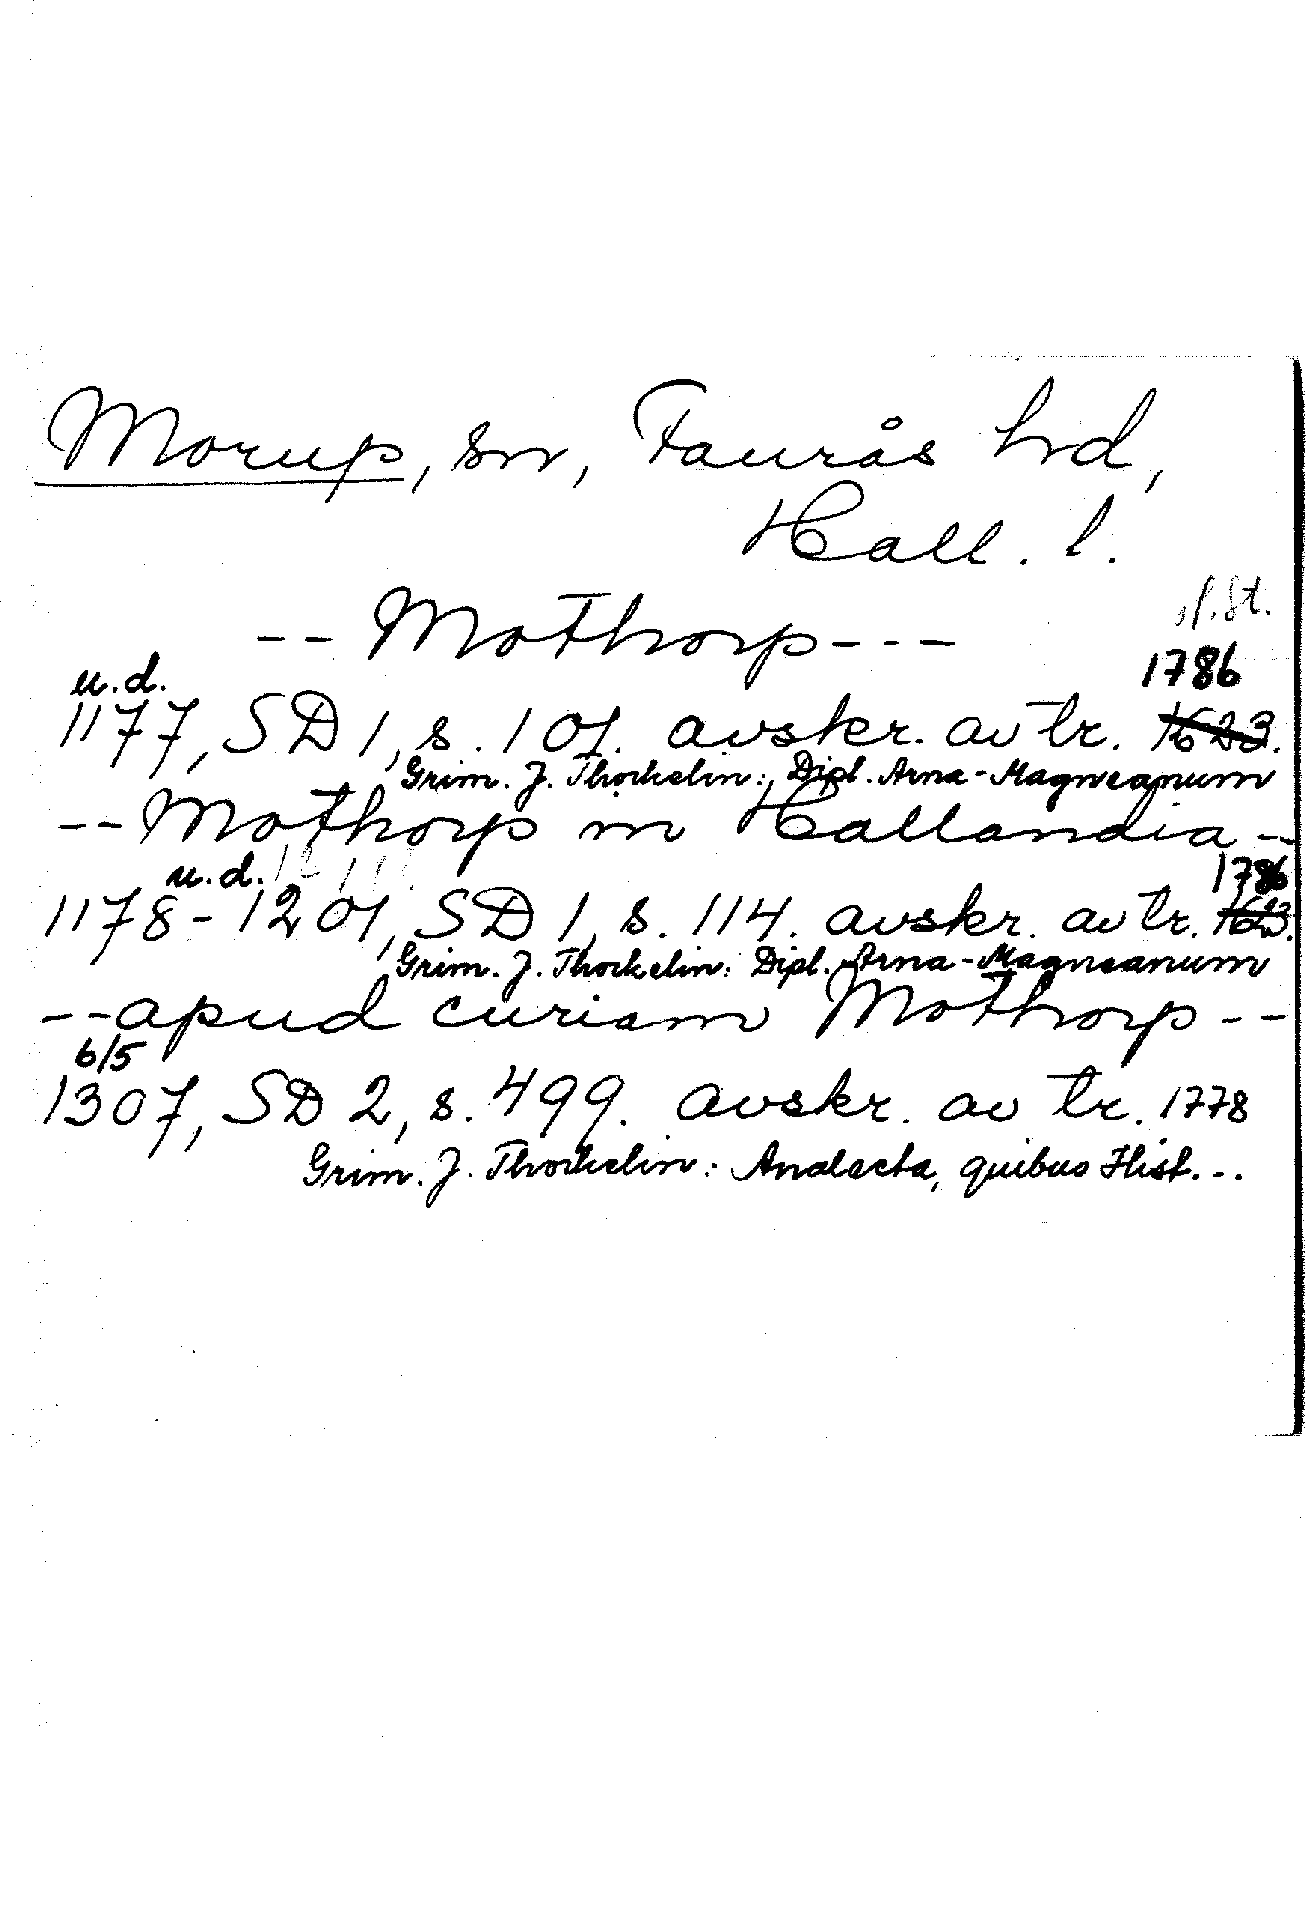 Morup, sn, Faurås hd,
Hall. l.
-- Mothorp ---
u.d. 1786
1177, SD 1, s. 107. avskr. av tr. 1623.
Grim. J. Thorkelin: Dipl. Arna-Magneanum
-- Mothorp in Hallandia --
u.d. 1786
1178-1201, SD 1, s. 114. avskr. av tr. 1623.
Grim. J. Thorkelin: Dipl. Arna-Magneanum
-- apud curiam Mothorp --
6/5
1307, SD 2, s. 499. avskr. av tr. 1778
Grim. J. Thorkelin: Analecta, quibus Hist...